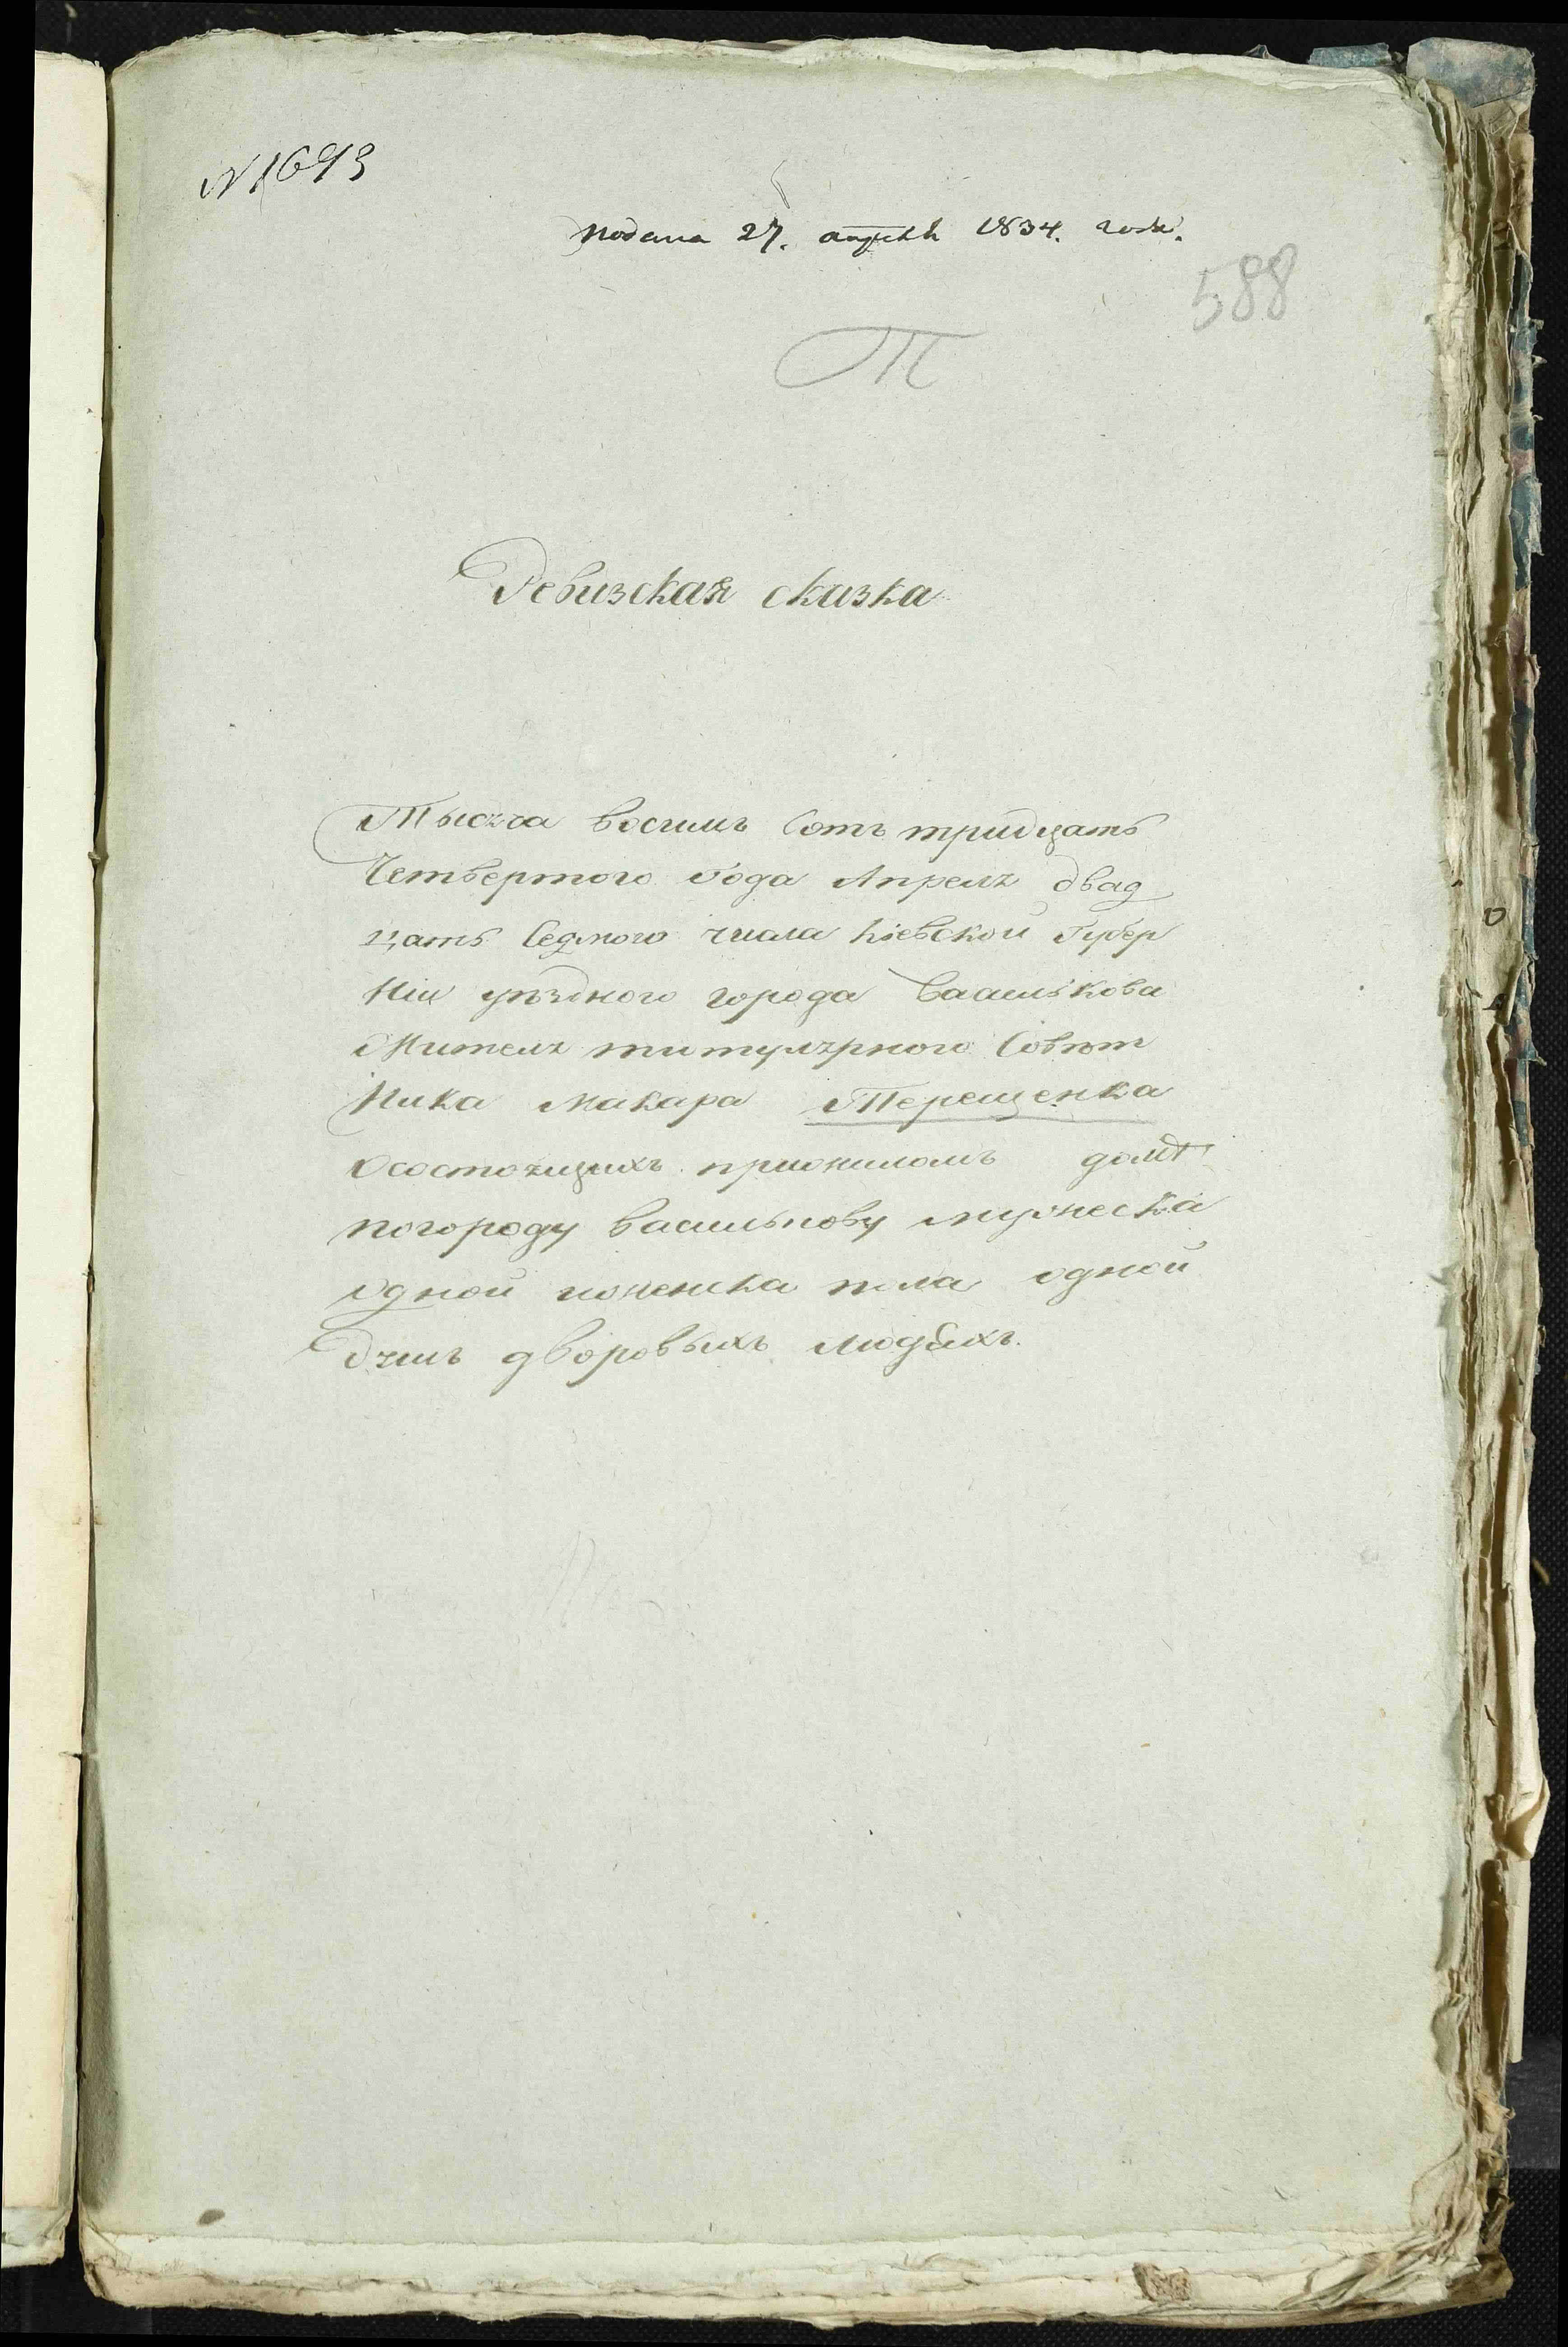 № 1693
подана 27. апреля 1834. года.
588
Т
Ревизская сказка
Тысяча восимъ Сотъ тридцать
Четвертого года Апреля двад
цать Седмого числа Кіевской Губер
ніи уѣздного города Василькова
Жителя титулярного Совѣт
ника Макара Терещенка
Осостоящихъ приономъ домѣ
погороду Василькову мужеска
одной иженска пола одной
душъ дворовыхъ людяхъ.